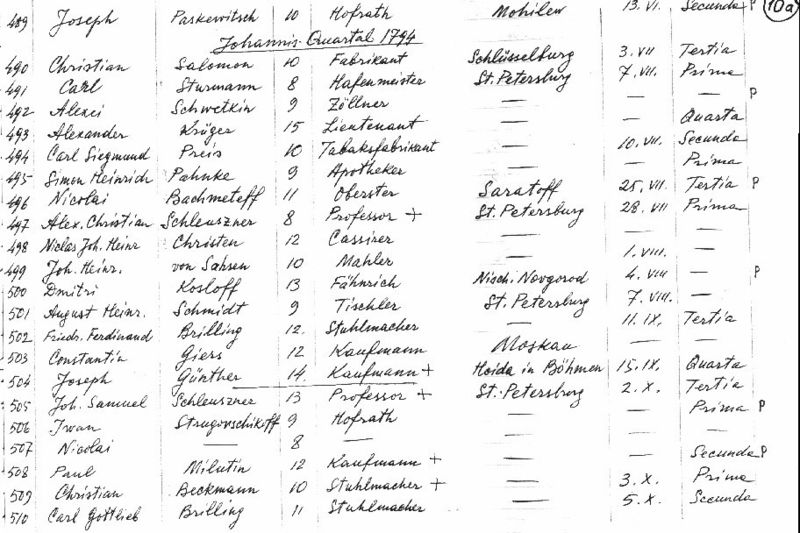 489 Joseph Paskewitsch 10 Hofrath Mohilew 13. VI. Secunda P 10a
Johannis-Quartal 1794
490 Christian Salomon 10 Fabrikant Schlüsselburg 3. VII Tertia
491 Carl Sturmann 8 Hafenmeister St. Petersburg 7. VII. Prima
492 Alexei Schwetkin 9 Zöllner — — — P
493 Alexander Krüger 15 Lieutenant — — Quarta
494 Carl Siegmund Preis 10 Tabaksfabrikant — 10. VII. Secunda
495 Simon Heinrich Pahnke 9 Apotheker — — Prima
496 Nicolai Bachmeteff 11 Oberster Saratoff 25. VII Tertia P
497 Alex. Christian Schleuszner 8 Professor + St. Petersburg 28. VII Prima
498 Niclas Joh. Heinr Christen 12 Cassirer — — —
499 Joh. Heinr. von Sahsen 10 Mahler — 1. VIII. —
500 Dmitri Kosloff 13 Fähnrich Nisch. Novgorod 4. VIII — P
501 August Heinr. Schmidt 9 Tischler St. Petersburg 7. VIII. —
502 Friedr. Ferdinand Brilling 12. Stuhlmacher — 11. IX. Tertia
503 Constantin Giers 12 Kaufmann Moskau — —
504 Joseph Günther 14. Kaufmann + Haida in Böhmen 15. IX. Quarta
505 Joh. Samuel Schleuszner 13 Professor + St. Petersburg 2. X. Tertia
506 Iwan Strugovschikoff 9 Hofrath — — Prima P
507 Nicolai — 8 — — — —
508 Paul Milutin 12 Kaufmann + — — Secunda P
509 Christian Beckmann 10 Stuhlmacher + — 3. X. Prima
510 Carl Gottlieb Brilling 11 Stuhlmacher — 5. X. Secunda